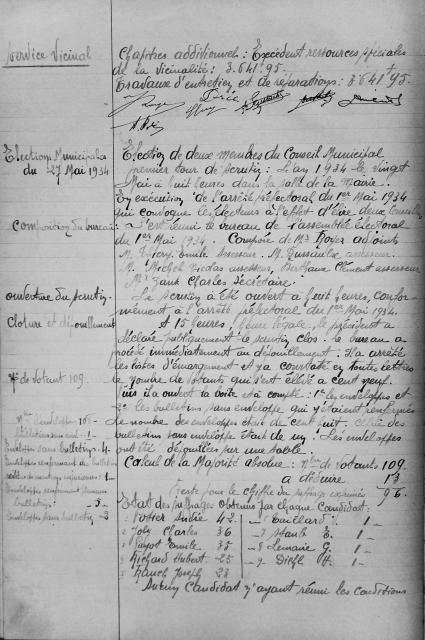 Service Vicinal
Chapitres additionnels : Excédent ressources spéciales
de la Vicinalité : 3.641.95
Travaux d'entretien et de réparations : 3.641.95
Elections Municipales
du 27 Mai 1934
Election de deux membres du Conseil Municipal
premier tour de scrutin : L'an 1934 le vingt
Mai à huit heures dans la salle de la Mairie.
En exécution de l'arrêté préfectoral du 1er Mai 1934
qui convoque les électeurs à l'effet d'élire deux
Composition du bureau :
s'est réuni le bureau de l'assemblée électoral
du 1er Mai 1934. Composée de Mr Royer adjoint
M. Emile Assesseur. M. assesseur.
M. Michel Nicolas assesseur, Clément assesseur
Mr Charles Secrétaire.
ouverture du scrutin
Le Scrutin a été ouvert à huit heures, confor-
mément à l'arrêté préfectoral du 1er Mai 1934.
Cloture et dépouillement
et 15 heures, heure légale, le président a
déclaré publiquement le scrutin clos. le bureau a
procédé immédiatement au dépouillement. Il a arrêté
les listes d'émargement et y a constaté en toutes lettres
Nre de Votant 109.
le nombre de votants qui s'est élevé à cent neuf.
Puis il a ouvert la boite et a compté : 1° les enveloppes et
2° les bulletins sans enveloppe qui y étaient renfermés
Le nombre des enveloppes était de cent huit, celui des
bulletins sans enveloppe était de un. Les enveloppes
ont été dépouillées sur une table.
Bulletins sans env. - 1 -
Enveloppes sans bulletins - 4 -
Enveloppes renfermant des bulletins
Calcul de la Majorité absolue : Nbre de Votants 109
a déduire 13
Reste pour le chiffre du suffrage exprimés 96.
Etat des suffrages obtenus par chaque Candidat :
1 Potier André 42 - 6 Gaillard 1 -
2 Joly Charles 36 - 7 Staub E. 1 -
3 Payot Emile 35 - 8 Lemaire G. 1 -
4 Richard Hubert 25 - 9 Diehl 1 -
5 Joseph 23
Aucun Candidat n'ayant réuni les conditions